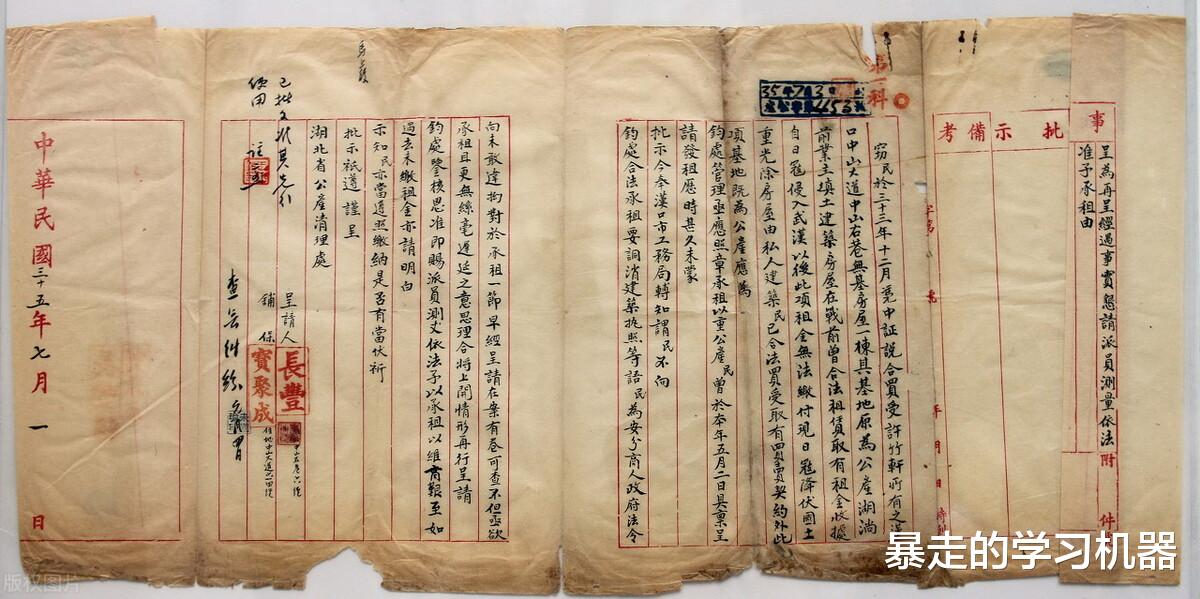 事
呈為再呈經過事實懇請派員測量依法
准予承租由
附件
批示備考
字第號
年月日
第一科
35 7 3
1153
竊民於三十三年十二月憑中証說合買受許竹軒所有之漢
口中山大道中山右巷無基房屋一棟其基地原為公產湖淌
前業主填土建築房屋在戰前曾合法租賃取有租金收據
自日寇侵入武漢以後此項租金無法繳付現日寇降伏國土
重光除房屋由私人建築民已合法買受取有買賣契約外此
項基地既為公產應為
鈞處管理亟應照章承租以重公產民曾於本年五月二日具稟呈
請發租應時甚久未蒙
批示今奉漢口市工務局轉知謂民不向
鈞處合法承租要詞消建築執照等語民為安分商人政府法令
向未敢違拘對於承租一節早經呈請在案有卷可查不但亟欲
承租且更無絲毫遲延之意思理合將上開情形再行呈請
鈞處鑒核恩准即賜派員測丈依法予以承租以維商艱至如
過去未繳租金亦請明白
示知民亦當遵照繳納是否有當伏祈
批示祇遵謹呈
湖北省公產清理處
呈請人
長豐
鋪保
寶聚成
住地中山大道
已批
中華民國三十五年七月一日
暴走的学习机器
版权图片